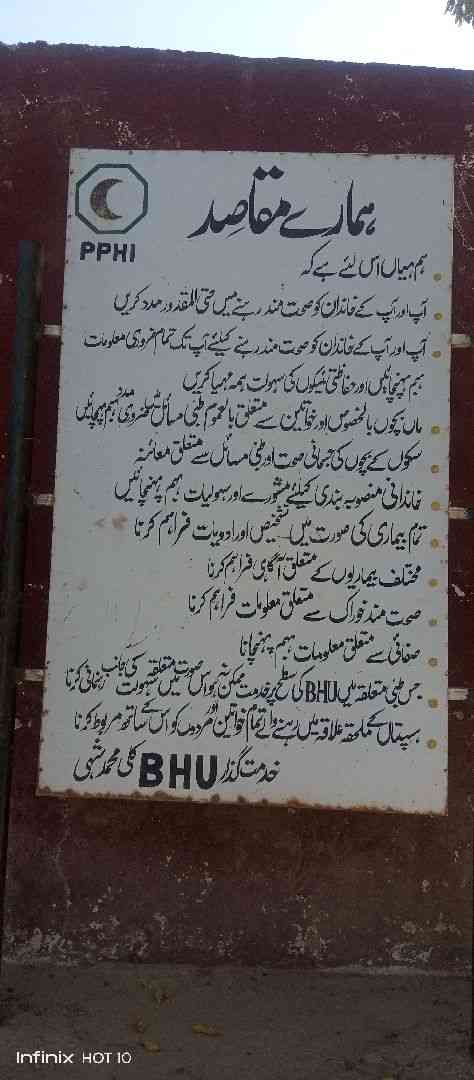 PPHI
ہمارے مقاصد
ہم یہاں اس لئے ہے کہ
آپ اور آپ کے خاندان کو صحت مند رہنے میں حتی المقدور مدد کریں
آپ اور آپ کے خاندان کو صحت مند رہنے کیلئے آپ تک تمام ضروری معلومات
ہم پہنچائیں اور حفاظتی ٹیکوں کی سہولت بہم مہیا کریں
ماں بچوں بالخصوص اور خواتین سے متعلق بالعموم طبی مسائل میں ضروری مدد بہم پہنچائیں
سکول کے بچوں کی جسمانی صحت اور طبی مسائل سے متعلق معائنہ
خاندانی منصوبہ بندی کیلئے مشورے اور سہولیات بہم پہنچائیں
تمام بیماری کی صورت میں تشخیص اور ادویات فراہم کرنا
مختلف بیماریوں کے متعلق آگاہی فراہم کرنا
صحت مند خوراک سے متعلق معلومات فراہم کرنا
صفائی سے متعلق معلومات بہم پہنچانا
جس طبی متعلقہ میں BHU کی سطح پر خدمت ممکن نہ ہو اس صورت میں متعلقہ سہولت کی جانب رہنمائی کرنا
ہسپتال کے ملحقہ علاقہ میں رہنے والے تمام خواتین اور مردوں کو اس کے ساتھ مربوط کرنا
خدمت گذار BHU کلی محمد شہی
Infinix HOT 10